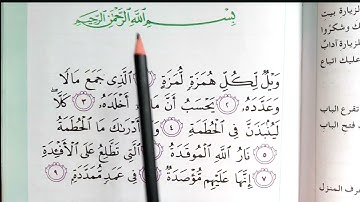 بِسْمِ اللَّهِ الرَّحْمَٰنِ الرَّحِيمِ
وَيْلٌ لِّكُلِّ هُمَزَةٍ لُّمَزَةٍ ١ الَّذِي جَمَعَ مَالًا
وَعَدَّدَهُ ٢ يَحْسَبُ أَنَّ مَا أَخْلَدَهُ ٣ كَلَّا
لَيُنۢبَذَنَّ فِي الْحُطَمَةِ ٤ وَ أَدْرَىٰكَ مَا الْحُطَمَةُ
٥ نَارُ اللَّهِ الْمُوقَدَةُ الَّتِي تَطَّلِعُ عَلَى الْأَفْـِٔدَةِ
٧ إِنَّهَا عَلَيْهِم مُّؤْصَدَةٌ فِي عَمَدٍ مُّمَدَّدَةٍ ٩
لزيارة بيت
وشكروا
لزيارة آداب
عليك اتباع
تقرع الباب
فتح الباب